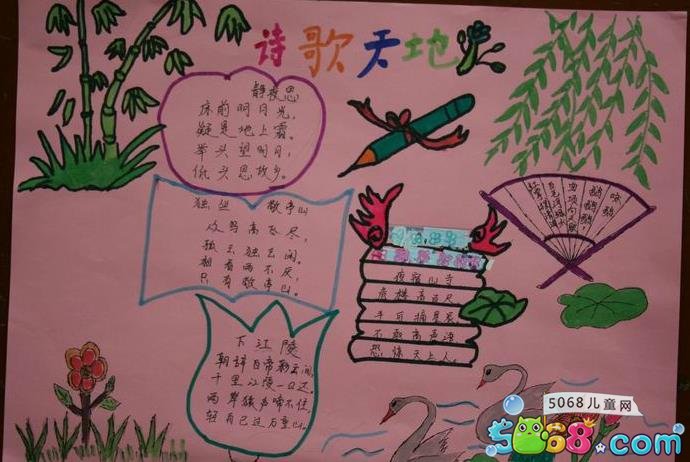 诗歌天地
静夜思
床前明月光，
疑是地上霜。
举头望明月，
低头思故乡。
独坐 敬亭山
众鸟高飞尽，
孤云独去闲。
相看两不厌，
只有敬亭山。
下江陵
朝辞白帝彩云间，
千里江陵一日还。
两岸猿声啼不住，
轻舟已过万重山。
夜宿山寺
危楼高百尺
手可摘星辰
不敢高声语
恐惊天上人。
咏鹅
鹅鹅鹅
曲项向天歌
白毛浮绿水
红掌拨清波
5068儿童网
5068.com